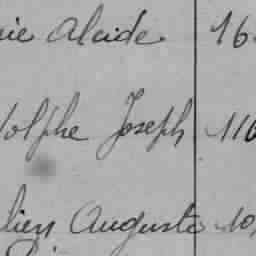 rie Alcide 16
dolphe Joseph 110
lien Auguste 10